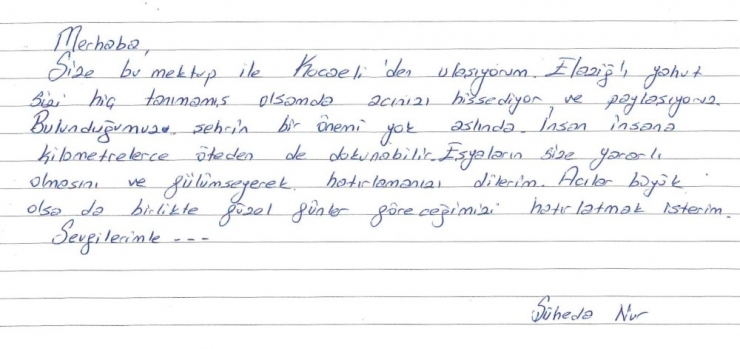 Merhaba,
Size bu mektup ile Kocaeli'den ulaşıyorum. Elazığ'ı yahut
sizi hiç tanımamış olsamda acınızı hissediyor ve paylaşıyoruz.
Bulunduğumuz şehrin bir önemi yok aslında. İnsan insana
kilometrelerce öteden de dokunabilir. Eşyaların size yararlı
olmasını ve gülümseyerek hatırlamanızı dilerim. Acılar büyük
olsa da birlikte güzel günler göreceğimizi hatırlatmak isterim.
Sevgilerimle ---
Şüheda Nur